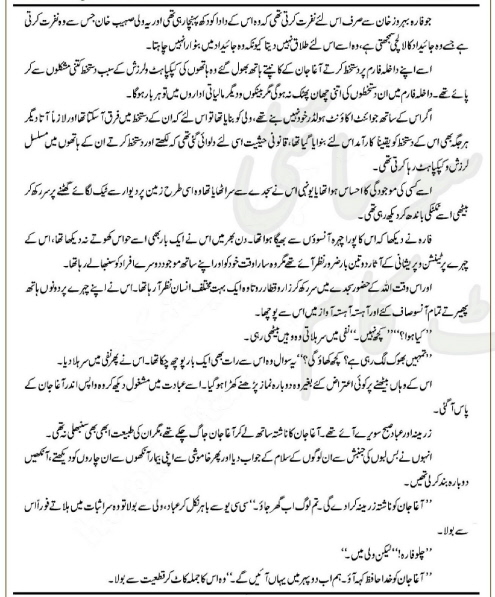 جو فارہ بہروز خان سے صرف اس لئے نفرت کرتی تھی کہ وہ اس کے دادا کو دکھ پہنچا رہی تھی اور یہ ولی صہیب خان جس سے وہ نفرت کرتی
ہے جسے وہ جائیداد کا لالچی سمجھتی ہے، وہ اسے اس لئے طلاق نہیں دیتا کیونکہ وہ جائیداد میں بٹوارا نہیں چاہتا۔
اسے اپنے داخلہ فارم پر دستخط کرتے آغا جان کے کانپتے ہاتھ بھول گئے وہ ہاتھوں کی کپکپاہٹ و لرزش کے سبب دستخط کتنی مشکلوں سے کر
پائے تھے۔ داخلہ فارم میں ان دستخطوں کی اتنی چھان پھٹک نہ ہو گی مگر بینکوں و دیگر مالیاتی اداروں میں تو ہر بار ہو گا۔
اگر اس کے ساتھ جوائنٹ اکاؤنٹ ہولڈر خود نہیں بنے تھے، ولی کو بنایا تھا تو اس لئے کہ ان کے دستخط میں فرق آ سکتا تھا اور لازماً تا دیگر
ہر جگہ بھی اس کے دستخط کو یقیناً کارآمد اس لئے بنوایا گیا تھا، قانونی حیثیت اسی لئے دلوائی گئی تھی کہ لکھتے اور دستخط کرتے ان کے ہاتھوں میں مسلسل
لرزش و کپکپاہٹ رہا کرتی تھی۔
اسے کسی کی موجودگی کا احساس ہوا تھا یا یونہی اس نے سجدے سے سر اٹھایا تھا وہ اسی طرح زمین پر دیوار سے ٹیک لگائے گھٹنے پر سر رکھ کر
بیٹھی اسے ٹکٹکی باندھ کر دیکھ رہی تھی۔
فارہ نے دیکھا کہ اس کا پورا چہرہ آنسوؤں سے بھیگا ہوا تھا۔ دن بھر میں اس نے ایک بار بھی اسے حواس کھوتے نہ دیکھا تھا، اس کے
چہرے پر ٹینشن و پریشانی کے آثار دو تین بار ضرور نظر آئے تھے مگر وہ سارا وقت خود کو اور اپنے ساتھ موجود دوسرے افراد کو سنبھالے رہا تھا۔
اور اس وقت اللہ کے حضور سجدے میں سر رکھ کر زار و قطار روتا وہ ایک بہت مختلف انسان نظر آ رہا تھا۔ اس نے اپنے چہرے پر دونوں ہاتھ
پھیرتے تمام آنسو صاف کئے اور آہستہ آہستہ آواز میں اس سے پوچھا۔
"کیا ہوا؟" "کچھ نہیں۔" نفی میں سر ہلاتی وہ وہیں بیٹھی رہی۔
"تمہیں بھوک لگ رہی ہے؟ کچھ کھاؤ گی؟" یہ سوال وہ اس سے رات بھی ایک بار پوچھ چکا تھا۔ اس نے پھر نفی میں سر ہلا دیا۔
اس کے وہاں بیٹھنے پر کوئی اعتراض کئے بغیر وہ دوبارہ نماز پڑھنے کھڑا ہو گیا۔ اسے عبادت میں مشغول دیکھ کر وہ واپس اندر آغا جان کے
پاس آ گئی۔
زرمینہ اور عباد صبح سویرے آئے تھے۔ آغا جان کا ناشتہ ساتھ لے کر آغا جان جاگ چکے تھے مگر ان کی طبیعت ابھی بھی سنبھلی نہ تھی۔
انہوں نے بس لبوں کی جنبش سے ان لوگوں کے سلام کے جواب دیا اور پھر خاموشی سے اپنی بیمار آنکھوں سے ان چاروں کو دیکھتے، آنکھیں
دوبارہ بند کر لی تھیں۔
"آغا جان کو ناشتہ زرمینہ کرا دے گی۔ تم لوگ اب گھر جاؤ۔" سی سی یو سے باہر نکل کر عباد، ولی سے بولا تو وہ سر اثبات میں ہلاتے فوراً اس
سے بولا۔
"چلو فارہ!" "لیکن ولی میں۔"
"آغا جان کو خدا حافظ کہہ آؤ۔ ہم اب دوپہر میں یہاں آئیں گے۔" وہ اس کا جملہ کاٹ کر قطعیت سے بولا۔